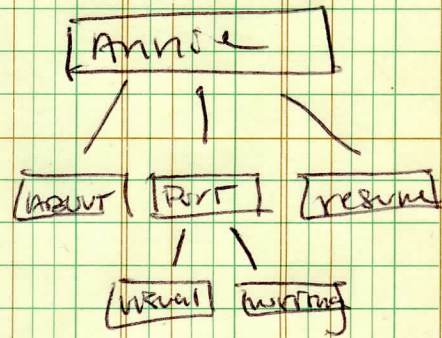 Annie
ABOUT PORT resume
visual writing